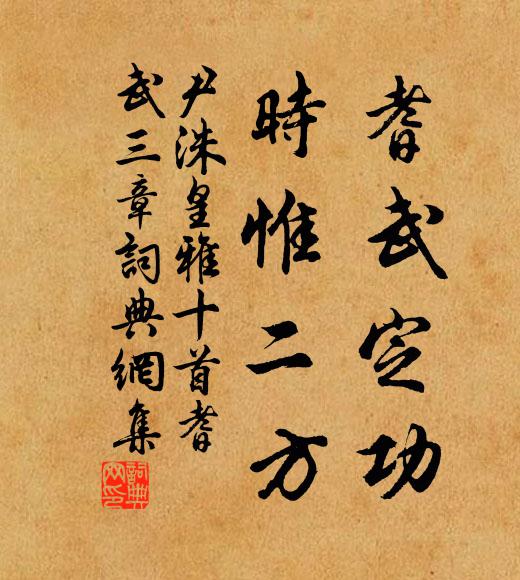 耆武定功
時惟二方
尹洙皇雅十首耆
武三章詞典網集
詞典網印